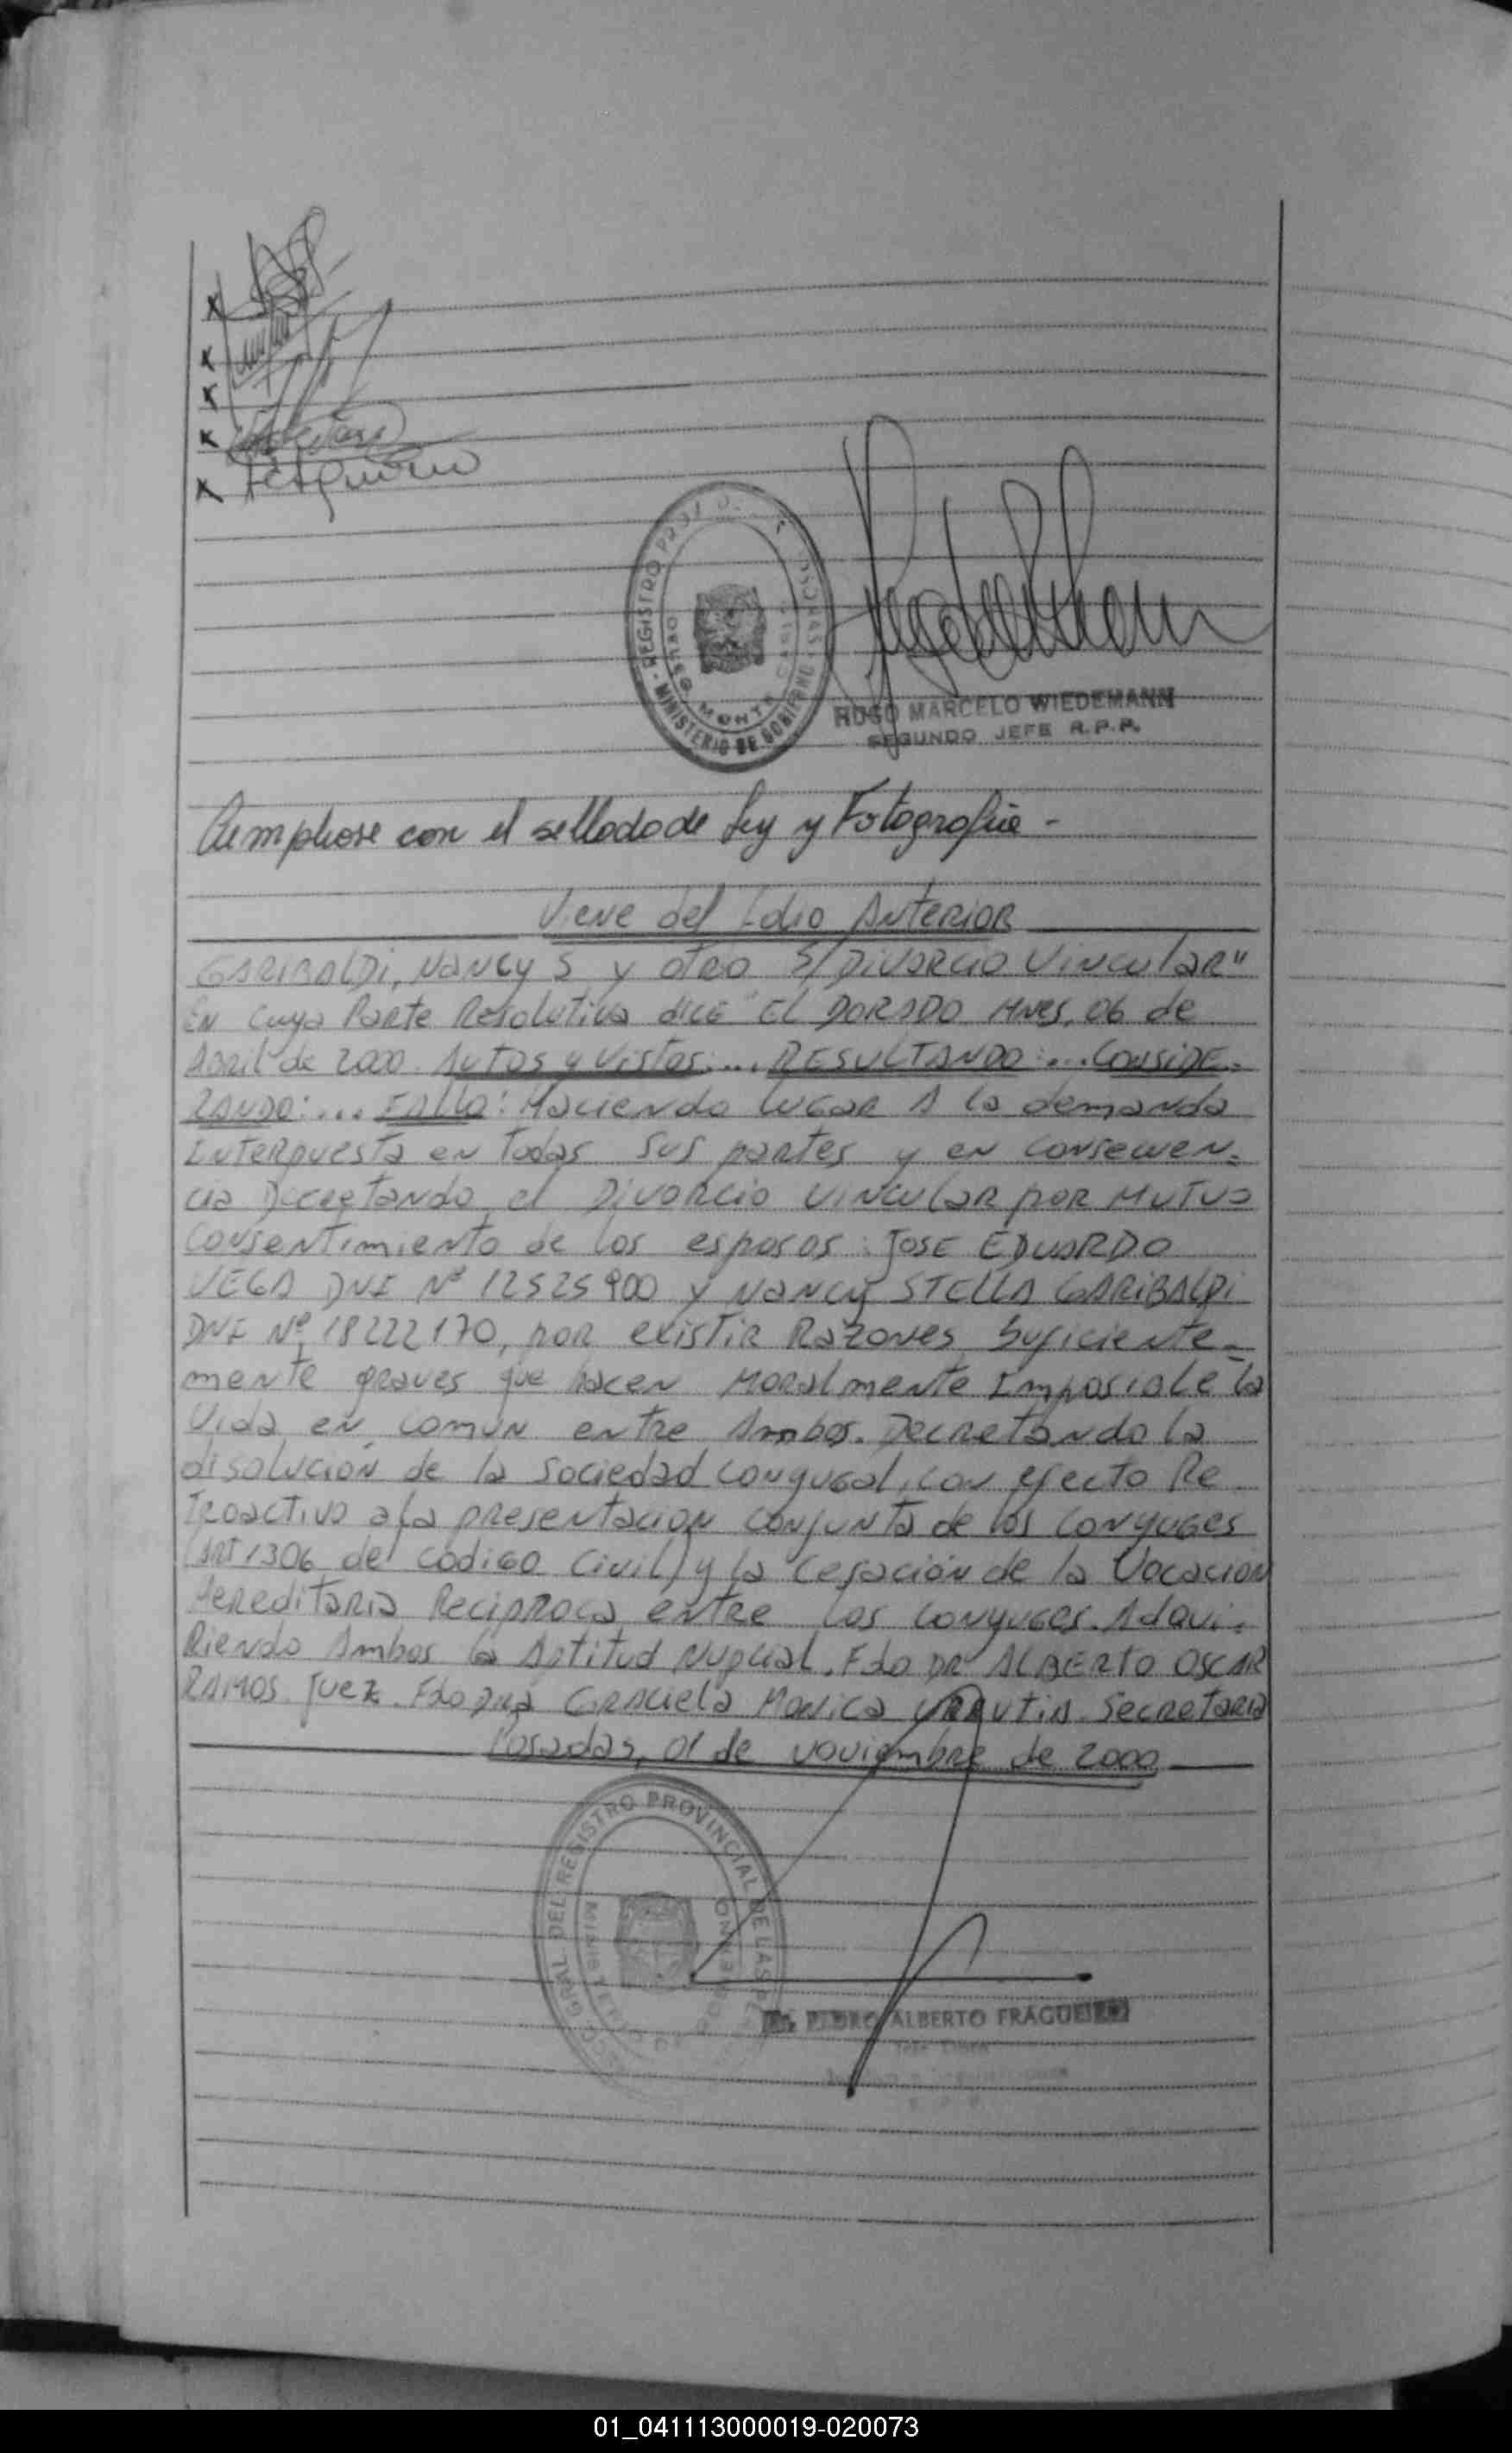 HUGO MARCELO WIEDEMANN
SEGUNDO JEFE R.P.P.
REGISTRO
MINISTERIO DE GOBIERNO
Cumpliose con el sellado de Ley y Fotografia -
Viene del Folio Anterior
GARIBALDI, NANCY S y otro S/ Divorcio Vincular"
En cuya Parte Resolutiva dice "El DORADO Mnes, 06 de
Abril de 2000. Autos y Vistos:... RESULTANDO:... CONSIDE-
RANDO:... FALLO: Haciendo lugar A la demanda
Interpuesta en todas sus partes y en consecuen-
cia Decretando el Divorcio Vincular por Mutuo
Consentimiento de los esposos: JOSE EDUARDO
VEGA DNI Nº 12525900 y NANCY STELLA GARIBALDI
DNI Nº 18222170, por existir Razones suficiente-
mente graves que hacen Moralmente Imposible la
Vida en común entre Ambos. Decretando la
disolución de la Sociedad conyugal, con efecto Re
troactivo a la presentación conjunta de los conyuges
(Art 1306 del Codigo Civil) y la Cesación de la Vocación
Hereditaria Reciproca entre los conyuges. Adqui-
Riendo Ambos la Aptitud Nupcial. Fdo DR ALBERTO OSCAR
RAMOS Juez. Fdo Dra Graciela Monica Secretaria
Posadas, 01 de noviembre de 2000
GRAL DEL REGISTRO PROVINCIAL DE LAS
Dr. PEDRO ALBERTO FRAGUEIRO
01_041113000019-020073